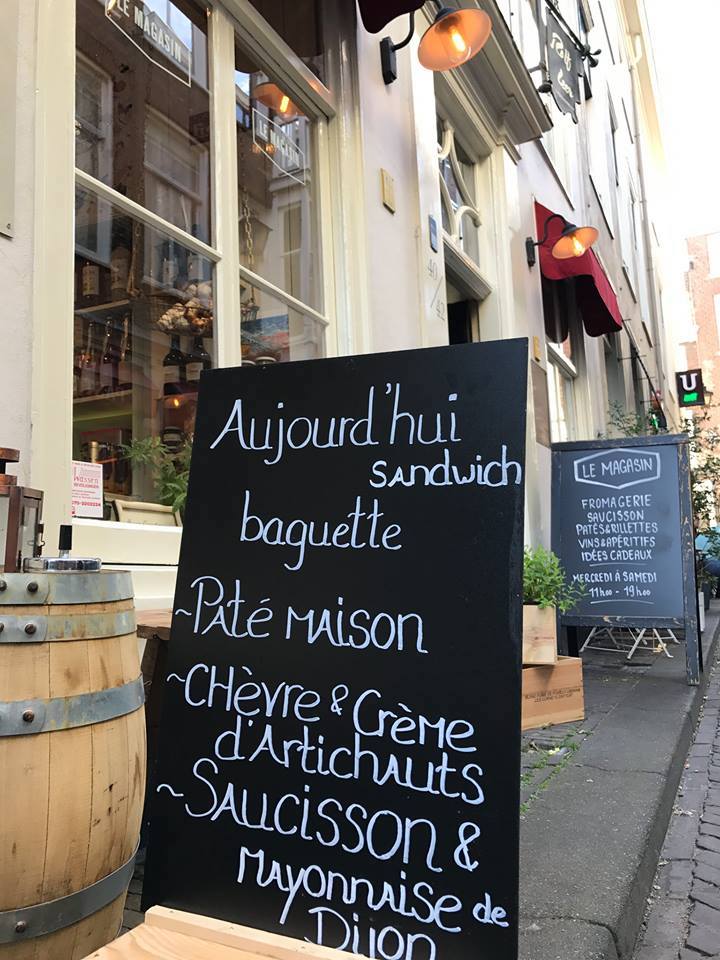 LE MAGASIN
LE MAGASIN
40/42
U
Aujourd'hui
SANdwich
baguette
~Paté MAISON
~CHèvre & Crème
d'Artichauts
~SAUCISSON &
MAYONNAISE de
Dijon
LE MAGASIN
FROMAGERIE
SAUCISSON
PATÉS & RILLETTES
VINS & APÉRITIFS
IDÉES CADEAUX
MERCREDI À SAMEDI
11h00 - 19h00